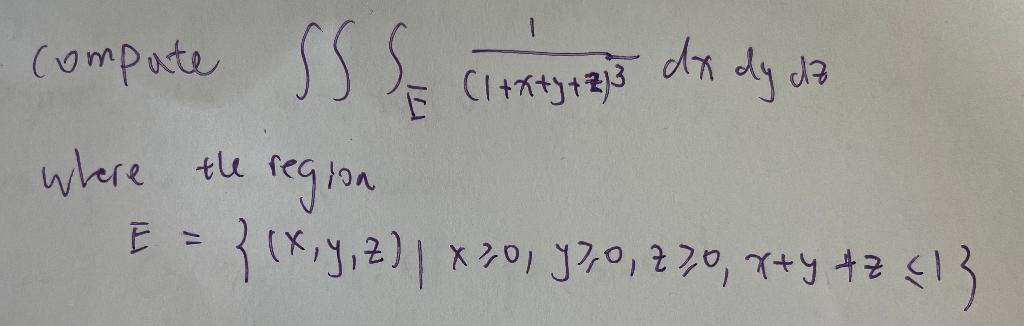 compute ∫∫∫_E 1/(1+x+y+z)^3 dx dy dz
where the region
E = {(x,y,z) | x≥0, y≥0, z≥0, x+y+z≤1}